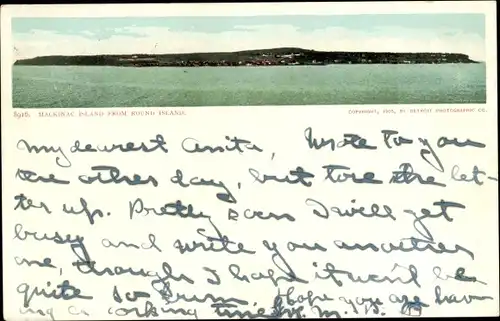 5918. MACKINAC ISLAND FROM ROUND ISLAND.
COPYRIGHT, 1902, BY DETROIT PHOTOGRAPHIC CO.
My dearest Anita, Wrote to you
the other day, but tore the let-
ter up. Pretty soon I will get
busy and write you another
one, though I hope it won't be
quite so Hope you are hav-
ing a corking time.